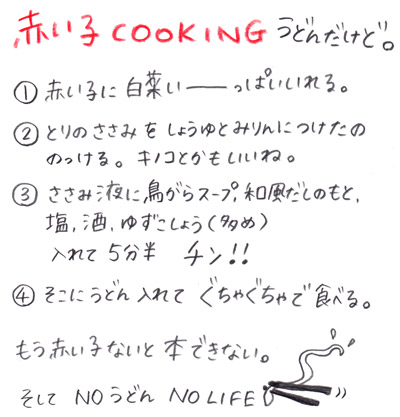 赤い子COOKING うどんだけど。
① 赤い子に 白菜い──っぱいいれる。
② とりのささみを しょうゆとみりんにつけたの
のっける。キノコとかもいいね。
③ ささみ液に鳥がらスープ,和風だしのもと,
塩,酒,ゆずこしょう(多め)
入れて 5分半 チン!!
④ そこにうどん入れて ぐちゃぐちゃで食べる。
もう赤い子ないと 本できない。
そして NOうどん NO LIFE